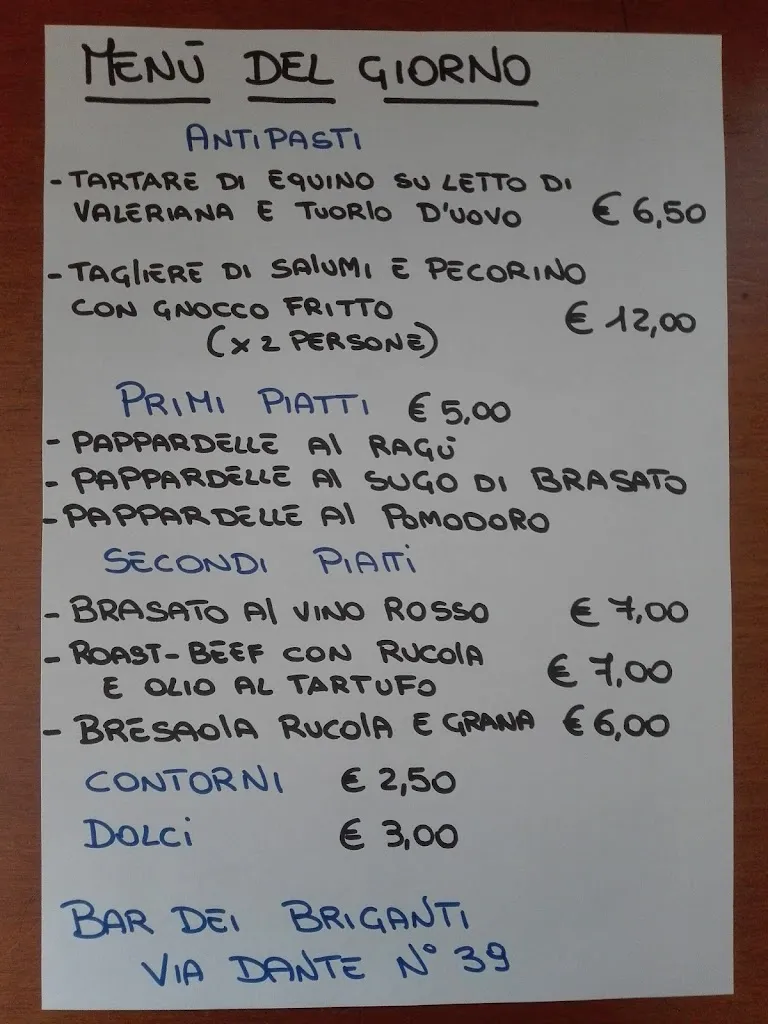 MENÙ DEL GIORNO
ANTIPASTI
- TARTARE DI EQUINO SU LETTO DI
VALERIANA E TUORLO D'UOVO € 6,50
- TAGLIERE DI SALUMI E PECORINO
CON GNOCCO FRITTO € 12,00
(X 2 PERSONE)
PRIMI PIATTI € 5,00
- PAPPARDELLE AL RAGÙ
- PAPPARDELLE AL SUGO DI BRASATO
- PAPPARDELLE AL POMODORO
SECONDI PIATTI
- BRASATO AL VINO ROSSO € 7,00
- ROAST-BEEF CON RUCOLA
E OLIO AL TARTUFO € 7,00
- BRESAOLA RUCOLA E GRANA € 6,00
CONTORNI € 2,50
DOLCI € 3,00
BAR DEI BRIGANTI
VIA DANTE N° 39